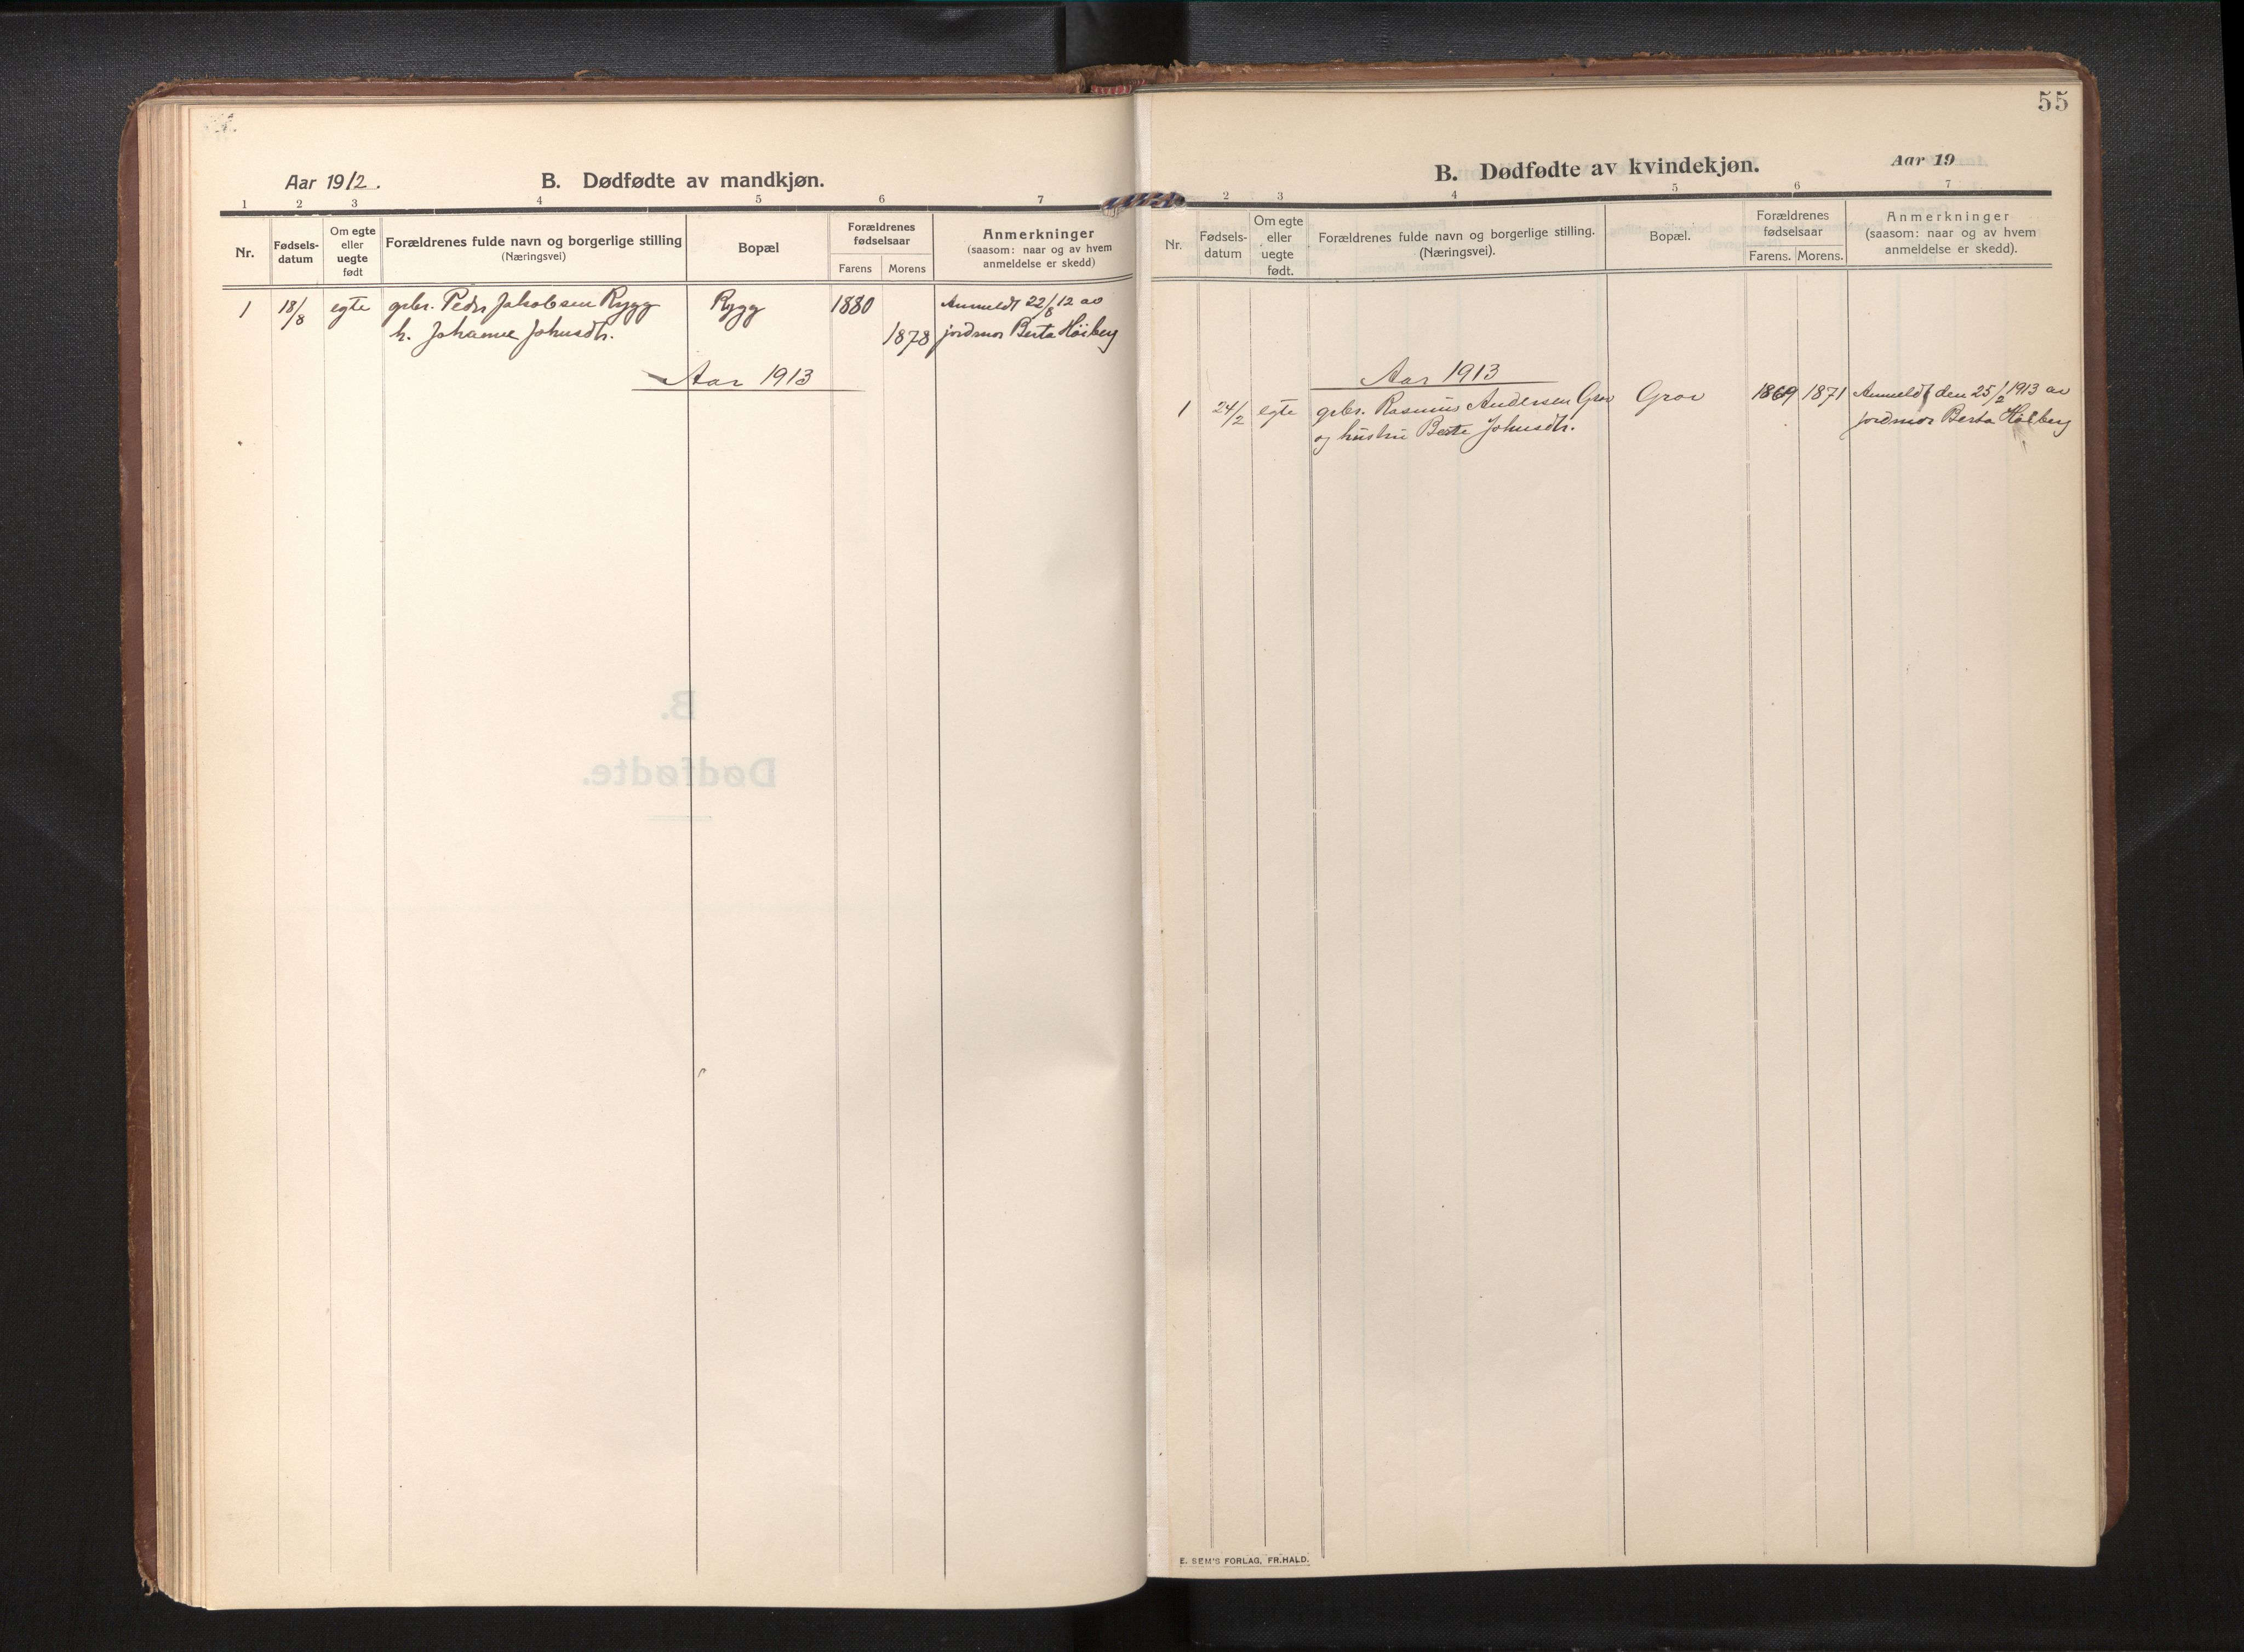 Aar 1912.
B. Dødfødte av mandkjøn.
1 2 3 4 5 6 7
Nr.
Fødsels-
datum
Om egte
eller
uegte
født
Forældrenes fulde navn og borgerlige stilling
(Næringsvei)
Bopæl
Forældrenes
fødselsaar
Farens Morens
Anmerkninger
(saasom: naar og av hvem
anmeldelse er skedd)
1 18/8 egte grbr. Peder Jakobsen Rygg Rygg 1880 Anmeldt 22/8 12 av
h. Johanne Johnsdtr. 1878 jordmor Berta Höiberg
Aar 1913
55
B. Dødfødte av kvindekjøn.
Aar 19
2 3 4 5 6 7
Nr.
Fødsels-
datum
Om egte
eller
uegte
født.
Forældrenes fulde navn og borgerlige stilling.
(Næringsvei).
Bopæl.
Forældrenes
fødselsaar
Farens. Morens.
Anmerkninger
(saasom: naar og av hvem
anmeldelse er skedd).
Aar 1913
1 24/2 egte grbr. Rasmus Andersen Grov Grov 1869 1871 Anmeldt den 25/2 1913 av
og hustru Berte Johnsdtr. jordmor Berta Höiberg
B.
Dødfødte.
E. SEM'S FORLAG, FR.HALD.